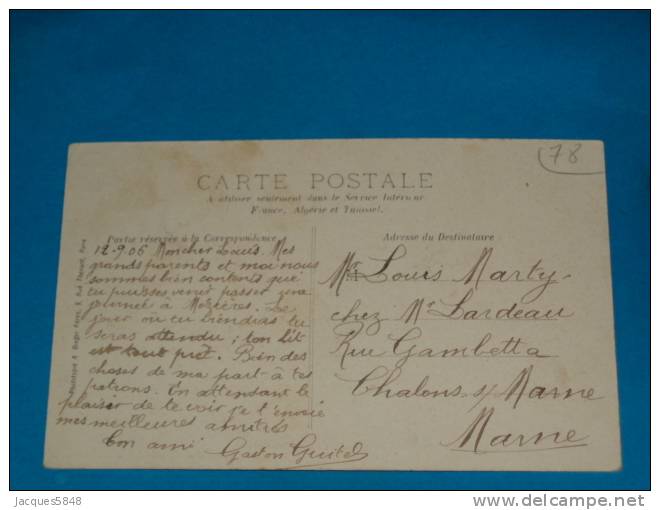 78
CARTE POSTALE
A utiliser seulement dans le Service Intérieur
France, Algérie et Tunisie).
Partie réservée à la Correspondance
Adresse du Destinataire
12-9.06 Mon cher Louis. Mes
grands parents et moi nous
sommes bien contents que
tu puisses venir passer une
journée à Mézières. Le
jour où tu viendras tu
seras attendu ; ton lit
est tout prêt. Bien des
choses de ma part à tes
patrons. En attendant le
plaisir de te voir je t'envoie
mes meilleures amitiés
Ton ami Gaston
Mr Louis Marty
chez Mr Lardeau
Rue Gambetta
Chalons s/ Marne
Marne
Jacques5848
delcampe.net